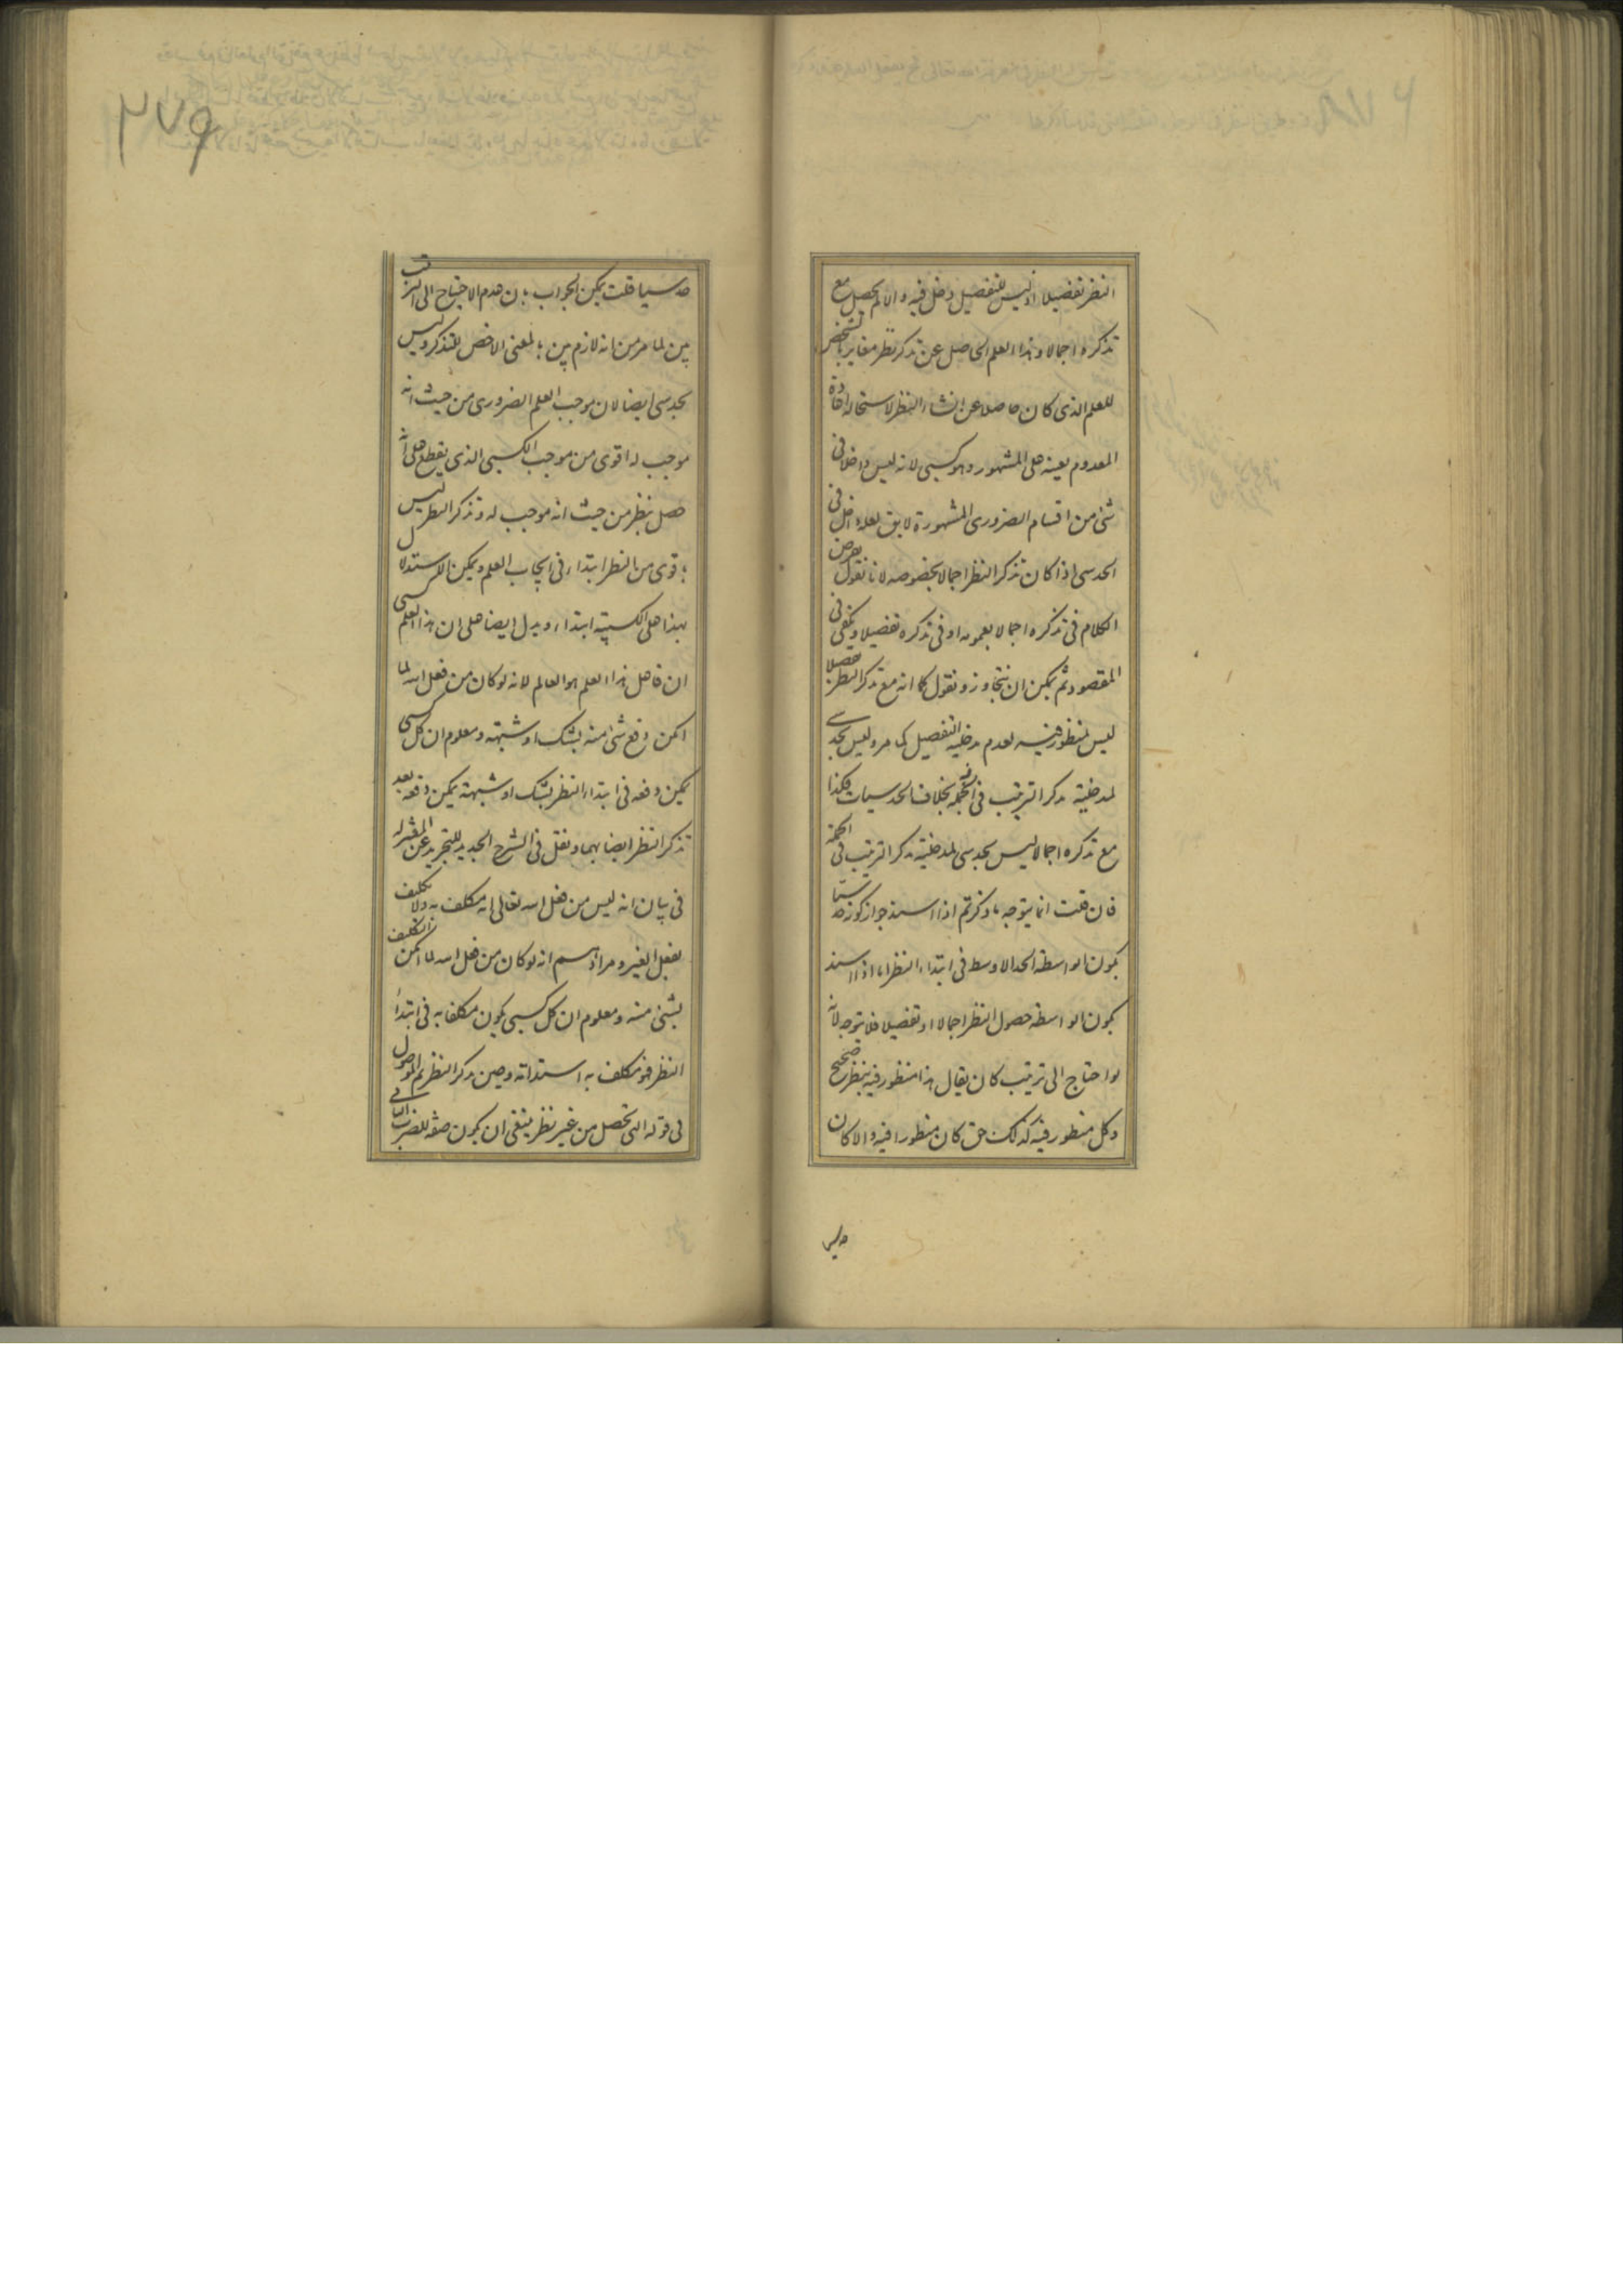 النظر تفصيلا اذ ليس للتفصيل دخل فيه والا لم يحصل مع
تذكره اجمالا وهذا العلم الحاصل عن تذكر نظر مغاير بالشخص
للعلم الذى كان حاصلا عن انشاء النظر لاستحالة اعادة
المعدوم بعينه على المشهور وهو كسبى لانه ليس داخلا فى
شئ من اقسام الضرورى المشهورة لا يق لعله داخل فى
الحدسى اذا كان تذكر النظر اجمالا بخصوصه لانا نقول نفرض
الكلام فى تذكره اجمالا بعمومه او فى تذكره تفصيلا ويكفى فى
المقصود ثم يمكن ان نتجاوز ونقول كما انه مع تذكر النظر تفصيلا
ليس لمنظور فيه لعدم مدخلية التفصيل كما مر وليس بحدسى
لمدخلية تذكر الترتيب فى الجملة بخلاف الحدسيات فكذا
مع تذكره اجمالا ليس بحدسى لمدخلية تذكر الترتيب فى الجملة
فان قلت انما يتوجه ما ذكرتم اذا اسند جواز كونه حدسيا
بكون الواسطة الحد الاوسط فى ابتداء النظر اما اذا اسند
بكون الواسطة حصول النظر اجمالا او تفصيلا فلا يتوجه لانه
لو احتاج الى ترتيب كان يقال هذا منظور فيه بنظر صحيح
وكل منظور فيه كذلك حق كان منظورا فيه والا كان
حدسيا
٢٧٩
حدسيا قلت يمكن الجواب بان عدم الاحتياج الى الترتيب
بين لما مر من انه لازم بين بالمعنى الاخص للتذكر وليس
بحدسى ايضا لان موجب العلم الضرورى من حيث انه
موجب له اقوى من موجب الكسبى الذى يقطع على انه
حصل بنظر من حيث انه موجب له وتذكر النظر ليس
باقوى من النظر ابتداء فى ايجاب العلم ويمكن الاستدلال
بهذا على الكسبية ابتداء ويدل ايضا على ان هذا العلم كسبى
ان فاعل هذا العلم هو العالم لانه لو كان من فعل الله لما
امكن دفع شئ منه بشك او شبهة ومعلوم ان كل كسبى
يمكن دفعه فى ابتداء النظر بشك او شبهة يمكن دفعه بعد
تذكر النظر ايضا بهما ونقل فى الشرح الجديد للتجريد عن المعتزلة
فى بيان انه ليس من فعل الله تعالى انه مكلف به ولا تكليف
بفعل الغير ومرادهم انه لو كان من فعل الله لما امكن التكليف
بشئ منه ومعلوم ان كل كسبى يكون مكلفا به فى ابتداء
النظر فهو مكلف به استدامة وحين تذكر النظر ثم الموصول
فى قوله التى تحصل من غير نظر ينبغى ان يكون صفة للضرب الثانى